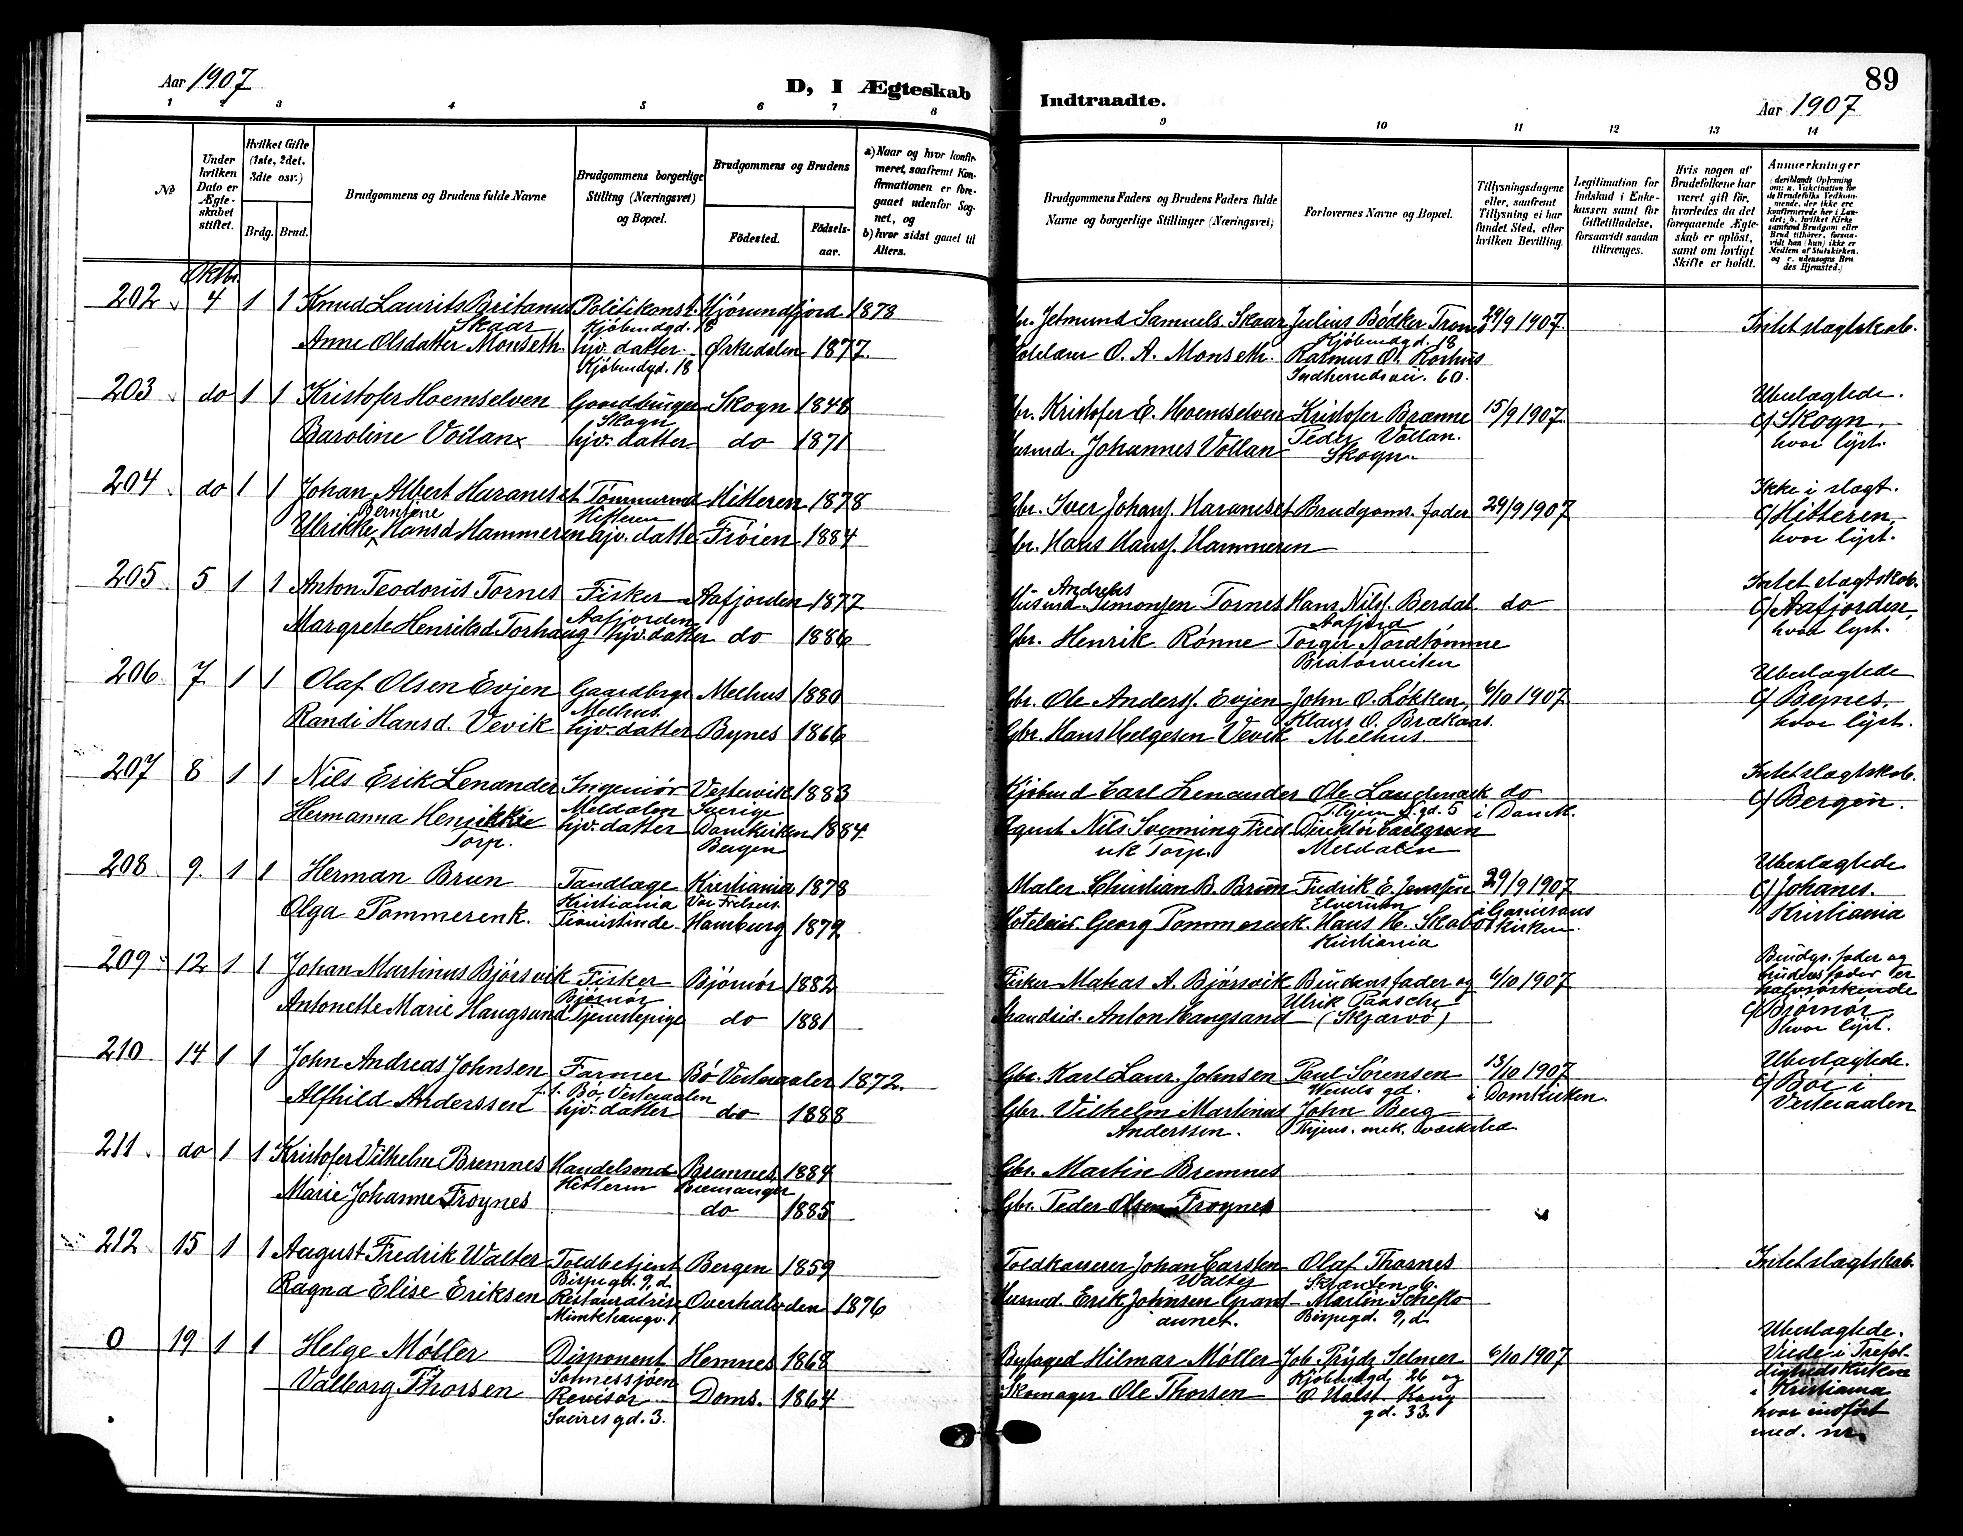 Aar 1907
D, I Ægteskab
1 2 3 4 5 6 7 8
No
Under hvilken Dato er Ægteskabet stiftet.
Hvilket Gifte (1ste, 2det. 3die osv.)
Brdg. Brud.
Brudgommens og Brudens fulde Navne
Brudgommens borgerlige Stilling (Næringsvei) og Bopæl.
Brudgommens og Brudens
Födested. Födselsaar.
a) Naar og hvor konfirmeret, saafremt Konfirmationen er foregaaet udenfor Sognet, og
b) hvor sidst gaaet til Alters.
Oktbr.
202 4 1 1 Knud Laurits Britanus Politikonst. Hjörundfjord 1878
Skaar Kjöbmdgd. 18
Anne Olsdatter Monseth hjv. datter Ørkedalen 1877.
Kjöbmdgd. 18
203 do 1 1 Kristofer Hoemselven Gaardbruger Skogn 1848
Skogn
Baroline Vollan hjv. datter do 1871
204 do 1 1 Johan Albert Haranset Tömmermd Hitteren 1878
Berntine Hitteren
Ulrikke Hansd Hammeren hjv. datte Fröien 1884
205 5 1 1 Anton Teodorus Tornes Fisker Aafjorden 1877
Aafjorden
Margrete Henriksd Torhaug hjv. datter do 1886
206 7 1 1 Olaf Olsen Evjen Gaardbrgr Melhus 1880
Melhus.
Randi Hansd. Vevik hjv. datter Bynes 1866
207 8 1 1 Nils Erik Lenander Ingeniör Vestervik 1883
Meldalen Sverige
Hermanna Henrikke hjv. datter Domkirken 1884.
Torp. Bergen
208 9. 1 1 Herman Brun Tandlæge Kristiania 1878
Kristiania Vor Frelsers
Olga Pommerenk. Pianistinde Hamburg 1879.
209 12 1 1 Johan Martinus Bjørsvik Fisker Bjørnør 1882
Bjørnør
Antonette Marie Haugsand Tjenestepige do 1881
210 14 1 1 John Andreas Johnsen Farmer Bö Vesteraalen 1872.
f. t. Bö, Vesteraalen
Alfhild Anderssen hjv. datter do 1888
211 do 1 1 Kristofer Vilhelm Bremnes Handelsmd Bremnes 1884
Hitteren
Marie Johanne Frøynes do 1885
212 15 1 1 August Fredrik Walter Toldbetjent Bergen 1859
Bispegd. 9, d.
Ragna Elise Eriksen Restauratrise Overhalvden 1876
Munkhaugv. 1
0 19 1 1 Helge Møller Disponent Hemnes 1868
Valborg Thorsen Revisor Doms. 1864
Sverresgd. 3.
89
Indtraadte.
Aar 1907
9 10 11 12 13 14
Brudgommens Faders og Brudens Faders fulde Navne og borgerlige Stillinger (Næringsvei;
Forlovernes Navne og Bopæl.
Tillysningsdagene eller, saafremt Tillysning ei har fundet Sted, efter hvilken Bevilling.
Legitimation for Indskud i Enkekassen samt for Giftetilladelse, forsaavidt saadan tiltrænges.
Hvis nogen af Brudefolkene har været gift før, hvorledes da det foregaaende Ægteskab er oplöst, samt om lovligt Skifte er holdt.
Anmerkninger
(deriblandt Oplysning om: a. Vakcination for de Brudefolks Vedkommende, der ikke ere konfirmerede her i Landet; b. hvilket Kirkesamfund Brudgom eller Brud tilhører, forsaavidt han (hun) ikke er Medlem af Statskirken. og c. udensogns Brudes Hjemsted.)
Gbr. Jetmund Samuels. Skaar Julius Bødker Trones 29/9 1907. Intet slægtskab.
Kjöbmdgd. 18
O. A. Monseth. Rasmus O. Rorhus
Indherredsvei. 60.
Gbr. Kristofer E. Hoemselven Kristofer Brænne 15/9 1907. Ubeslægtede.
c/ Skogn,
Husmd. Johannes Vollan Peder Vollan. hvor lyst.
Skogn.
Gbr. Iver Johans. Haranset Brudgoms. fader 29/9 1907 Ikke i slægt.
c/ Hitteren,
Gbr. Hans Hans. Hammeren hvor lyst.
Andreas
Husmd Simonsen Tornes Hans Nils. Berdal do Intet slægtskab.
Aafjord c/ Aafjorden,
Gbr. Henrik Rønne Torger Nordtømme hvor lyst.
Bratørveiten
Gbr. Ole Anders. Evjen John O. Løkken, 6/10 1907. Ubeslægtede
Klaus O. Brækaas. c/ Bynes,
Gbr. Hans Helgesen Vevik Melhus hvor lyst.
Kjöbmd Carl Lenander Ole Landmark do Intet slægtskab.
Thjem S. gd. 5 i Domk. c/ Bergen.
Agent Nils Svenning Fred Direktör Carlgren
rik Torp. Meldalen
Maler Christian B. Brun Fredrik E. Jenssen 29/9 1907 Ubeslægtede
Elverum i Garnisons c/ Johanes.
Hoteleier Georg Pommerenk. Hans H. Skabo kirken. Kristiania
Kristiania
Fisker Matias A. Bjørsvik Brudens fader og 6/10 1907 Brudgs. fader og
Ulrik Paasche brudens fader er
Strandsid. Anton Haugsand (Skjærvø) halvsøskende
c/ Bjørnør,
hvor lyst.
Gbr. Karl Laur. Johnsen Paul Sørensen 13/10 1907 Ubeslægtede.
i Domkirken. c/ Bø i
Gbr. Vilhelm Martinus John Berg Vesteraalen
Anderssen. Thjems. mek. værksted
Gbr. Martin Bremnes
Gbr. Peder Olsen Frøynes
Toldkasserer Johan Carsten Olaf Thosnes Intet slægtskab.
Walter
Husmd. Erik Johnsen Grand Martin
aunet. Bispegd. 9, d.
Byfoged Hilmar Møller Joh. Prydz Selmer 6/10 1907 Ubeslægtede.
Kjöbmdgd. 26 og Viede i Trefol
Skomager Ole Thorsen O. Halst Krug digheds kirken
gd. 33. i Kristiania
hvor indført
med. nr.